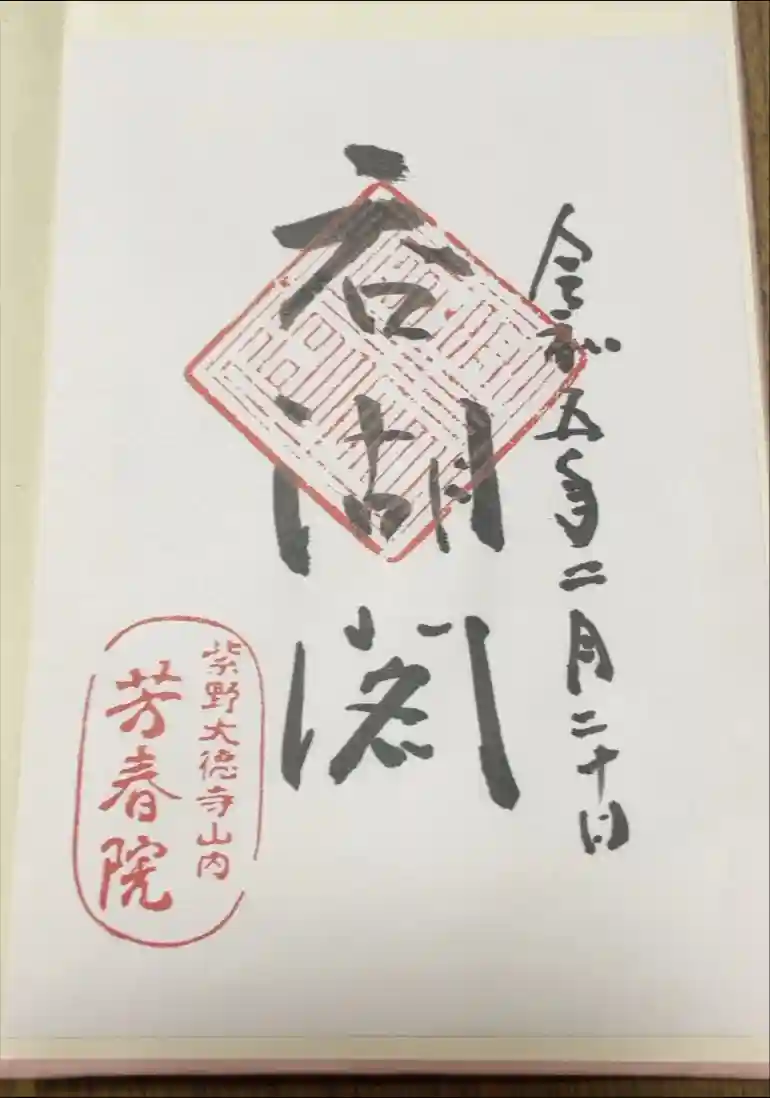 令和五年二月二十日
呑湖閣
紫野大徳寺山内
芳春院